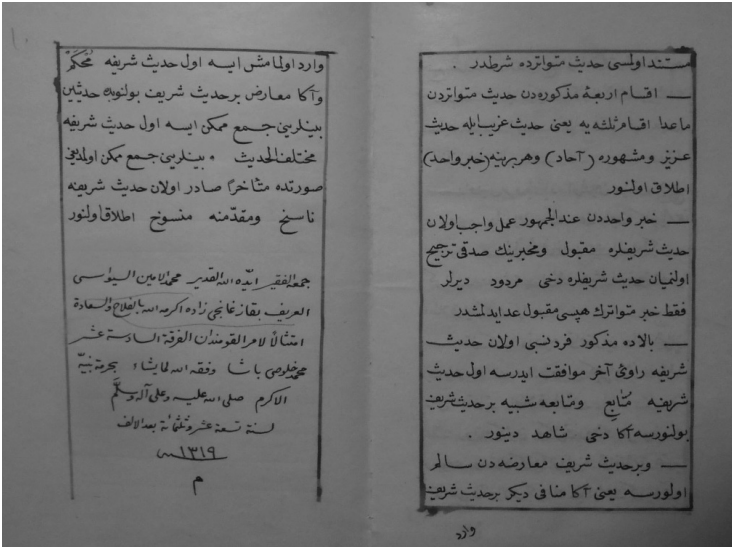 مستند اولمسی حدیث متواترده شرطدر .
— اقسام اربعهٔ مذکوره‌دن حدیث متواتردن
ماعدا اقسام ثلثه‌یه یعنی حدیث غریب ایله حدیث
عزیز و مشهوره (آحاد) و هر برینه (خبر واحد)
اطلاق اولنور
— خبر واحددن عند الجمهور عمل واجب اولان
حدیث شریفلره مقبول و مخبرینك صدقی ترجیح
اولنمیان حدیث شریفلره دخی مردود دیرلر
فقط خبر متواترك هپسی مقبول عد ایدلمشدر
— بالاده مذکور فرد نسبی اولان حدیث
شریفه راوئ آخر موافقت ایدرسه اول حدیث
شریفه مُتابِع و متابعه شبیه بر حدیث شریف
بولنورسه آكا دخی شاهد دینور .
— و بر حدیث شریف معارضه‌دن سالم
اولورسه یعنی آكا منافی دیكر بر حدیث شریف
وارد
وارد اولمامش ایسه اول حدیث شریفه مُحكَم
و آكا معارض بر حدیث شریف بولنوبده حدیثین
بینلرینی جمع ممكن ایسه اول حدیث شریفه
مختلف الحدیث ٭ بینلرینی جمع ممكن اولمدیغی
صورتده متأخراً صادر اولان حدیث شریفه
ناسخ و مقدّمنه منسوخ اطلاق اولنور
جمعه الفقیر ایّده الله القدیر محمد الامین السیواسی
العریف بقازغانجی زاده اکرمه الله بالفلاح والسعادة
امتثالاً لامر القومندان الفرقة السادسة عشر
محمد خلوصی پاشا وفقه الله لما یشاء بحرمة نبیّه
الاکرم صلی الله علیه وعلی آله وسلَّم
لسنة تسعة عشر وثلثمائة بعد الالف
سنه ١٣١٩
م